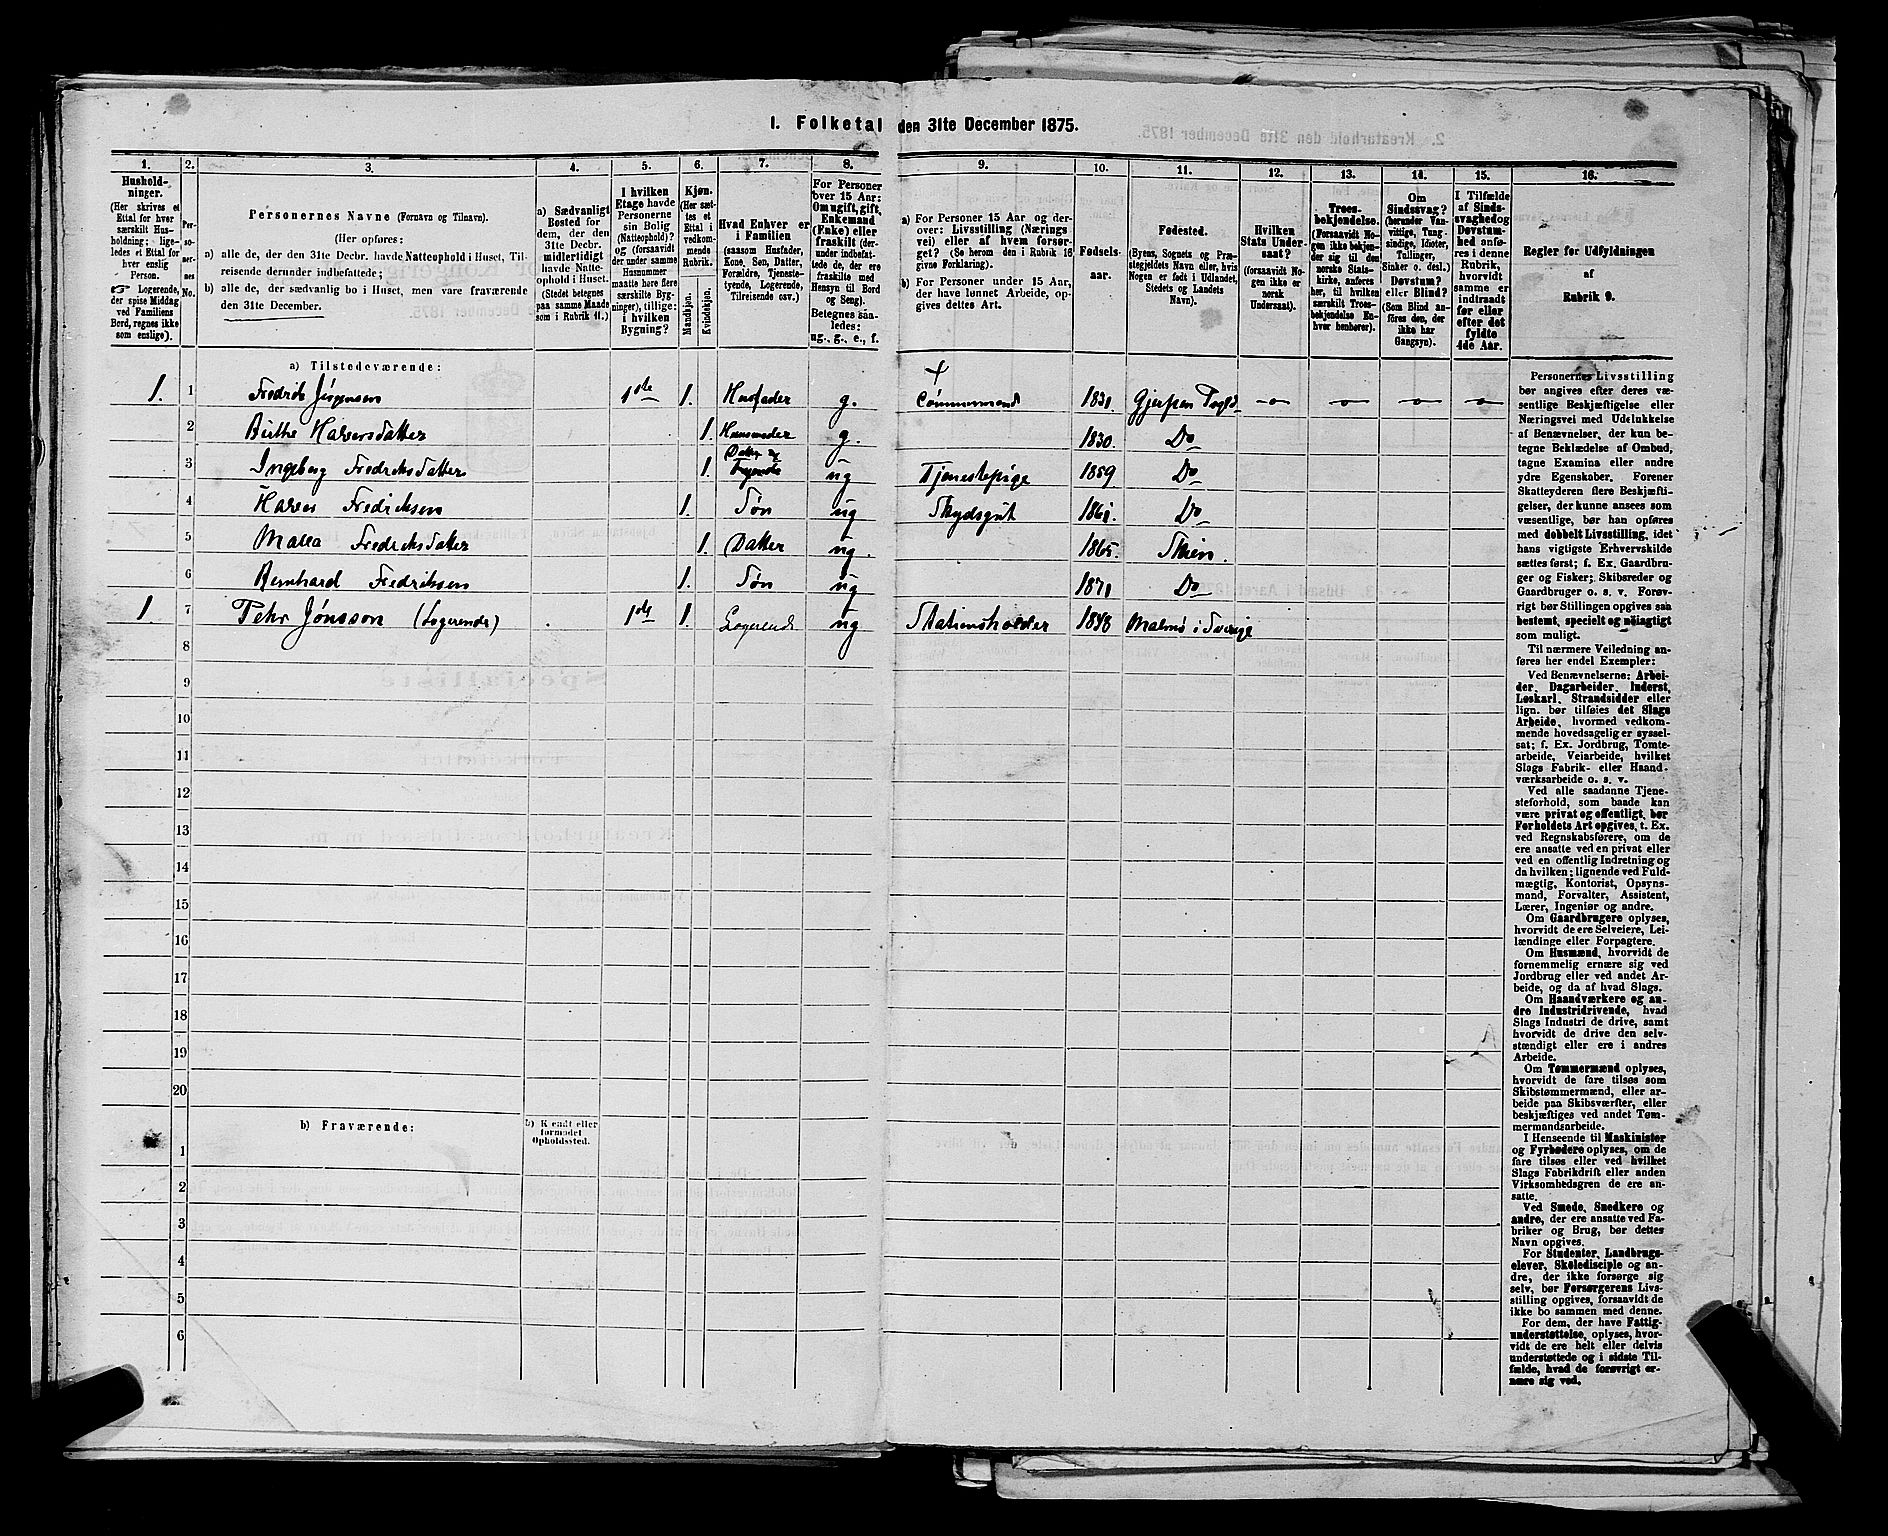 I. Folketal den 31te December 1875.
1. 2. 3. 4. 5. 6. 7. 8. 9. 10. 11. 12. 13. 14. 15. 16.
Hushold-
ninger.
(Her skrives et
Ettal for hver
særskilt Hus-
holdning; lige-
ledes et Ettal for
hver enslig
Person.
☞ Logerende,
der spise Middag
ved Familiens
Bord, regnes ikke
som enslige).
Per-
so-
ner-
nes
No.
Personernes Navne (Fornavn og Tilnavn).
(Her opføres:
a) alle de, der den 31te Decbr. havde Natteophold i Huset, Til-
reisende derunder indbefattede;
b) alle de, der sædvanlig bo i Huset, men vare fraværende
den 31te December.
a) Sædvanligt
Bosted for
dem, der den
31te Decbr.
midlertidigt
havde Natte-
ophold i Huset.
(Stedet betegnes
paa samme Maade
som i Rubrik 11.)
I hvilken
Etage havde
Personerne
sin Bolig
(Natteophold)?
og (forsaavidt
der under samme
Husnummer
maatte høre flere
særskilte Byg-
ninger), tillige:
i hvilken
Bygning?
Kjøn.
(Her sæt-
tes et
Ettal i
vedkom-
mende
Rubrik.
Mandkjøn.
Kvindekjøn.
Hvad Enhver er
i Familien
(saasom Husfader,
Kone, Søn, Datter,
Forældre, Tjeneste-
tyende, Logerende,
Tilreisende osv.)
For Personer
over 15 Aar:
Om ugift, gift,
Enkemand
(Enke) eller
fraskilt (der-
under indbefat-
tede de, der ere
fraskilte med
Hensyn til Bord
og Seng).
Betegnes saa-
ledes:
ug., g., e., f.
a) For Personer 15 Aar og der-
over: Livsstilling (Nærings
vei) eller af hvem forsør-
get? (Se herom den i Rubrik 16
givne Forklaring).
b) For Personer under 15 Aar,
der have lønnet Arbeide, op-
gives dettes Art.
Fødsels-
aar.
Fødested.
(Byens, Sognets og Præ-
stegjeldets Navn eller, hvis
Nogen er født i Udlandet,
Stedets og Landets
Navn).
Hvilken
Stats Under-
saat?
(forsaavidt No-
gen ikke er
norsk
Undersaat).
Troes-
bekjendelse.
(Forsaavidt No-
gen ikke bekjen-
der sig til den
norske Stats-
kirke, anføres
her, til hvilket
særskilt Troes-
bekjendelse En-
hver henhører).
Om
Sindssvag?
(herunder Van-
vittige, Tung-
sindige, Idioter,
Tullinger,
Sinker o. desl.)
Døvstum?
eller Blind?
(Som Blind an-
føres den, der
ikke har
Gangsyn).
I Tilfælde
af Sinds-
svaghed og
Døvstum-
hed anfø-
res i denne
Rubrik,
hvorvidt
samme er
indtraadt
før eller
efter det
fyldte
4de Aar.
Regler for Udfyldningen
af
Rubrik 9.
a) Tilstedeværende:
1. 1 Fredrik Jørgensen 1ste 1. Husfader g. 1831. Gjerpen Pogld. -o- -o- -o- -o-
2 Birthe Halvorsdatter 1. Husmoder g. 1830. Do
3 Ingeborg Fredriksdatter 1. Datter ug Tjenestepige 1859 Do
4 Fredriksen 1. Søn ug Skydsgut Do
5 Fredriksdatter 1. Datter ug. 1865. Skien.
6 Bernhard Fredriksen 1. Søn ug 1871 Do
1 7 Pehr Jönsson (Logerende) 1ste 1. Logerende ug Stationsholder 1848 Malmö i Sverige
8
9
10
11
12
13
14
15
16
17
18
19
20
b) Fraværende:
b) Kjendt eller
formodet
Opholdssted.
1
2
3
4
5
6
Personernes Livsstilling
bør angives efter deres væ-
sentlige Beskjæftigelse eller
Næringsvei med Udelukkelse
af Benævnelser, der kun be-
tegne Beklædelse af Ombud,
tagne Examina eller andre
ydre Egenskaber. Forener
Skatteyderen flere Beskjæfti-
gelser, der kunne ansees som
væsentlige, bør han opføres
med dobbelt Livsstilling, idet
hans vigtigste Erhvervskilde
sættes først; f. Ex. Gaardbru-
ger og Fisker; Skibsreder og
Gaardbruger o. s. v. Forøv-
rigt bør Stillingen opgives saa
bestemt, specielt og nøiagtigt
som muligt.
Til nærmere Veiledning an-
føres her endel Exempler:
Ved Benævnelserne: Arbei-
der, Dagarbeider, Inderst,
Løskarl, Strandsidder eller
lign. bør tilføies det Slags
Arbeide, hvormed vedkom-
mende hovedsagelig er syssel-
sat; f. Ex. Jordbrug, Tomte-
arbeide, Veiarbeide, hvilket
Slags Fabrik- eller Haand-
værksarbeide o. s. v.
Ved alle saadanne Tjene-
steforhold, som baade kan
være privat og offentligt, bør
Forholdets Art opgives, t. Ex.
ved Regnskabsførere, om de
ere ansatte ved en privat eller
ved en offentlig Indretning og
da hvilken; lignende ved Fuld-
mægtig, Kontorist, Opsyns-
mand, Forvalter, Assistent,
Lærer, Ingeniør og andre.
Om Gaardbrugere oplyses,
hvorvidt de ere Selveiere, Lei-
lændinge eller Forpagtere.
Om Husmænd, hvorvidt de
fornemmelig ernære sig ved
Jordbrug eller ved andet Ar-
beide, og da af hvad Slags.
Om Haandværkere og an-
dre Industridrivende, hvad
Slags Industri de drive, samt
hvorvidt de drive den selv-
stændigt eller ere i andres
Arbeide.
Om Tømmermænd oplyses,
hvorvidt de fare tilsøs som
Skibstømmermænd, eller ar-
beide paa Skibsværfter, eller
beskjæftiges ved andet Tøm-
mermandsarbeide.
I Henseende til Maskinister
og Fyrbødere oplyses, om de
fare tilsøs eller ved hvilket
Slags Fabrikdrift eller anden
Virksomhedsgren de ere an-
satte.
Ved Smede, Snedkere og
andre, der ere ansatte ved Fa-
briker og Brug, bør dettes
Navn opgives.
For Studenter, Landbrugs-
elever, Skoledisciple og an-
dre, der ikke forsørge sig
selv, bør Forsørgerens Livs-
stilling opgives, forsaavidt de
ikke bo sammen med denne.
For dem, der have Fattig-
understøttelse, oplyses, hvor-
vidt de ere helt eller delvis
understøttede og i sidste Til-
fælde, hvad de forøvrigt er-
nære sig ved.